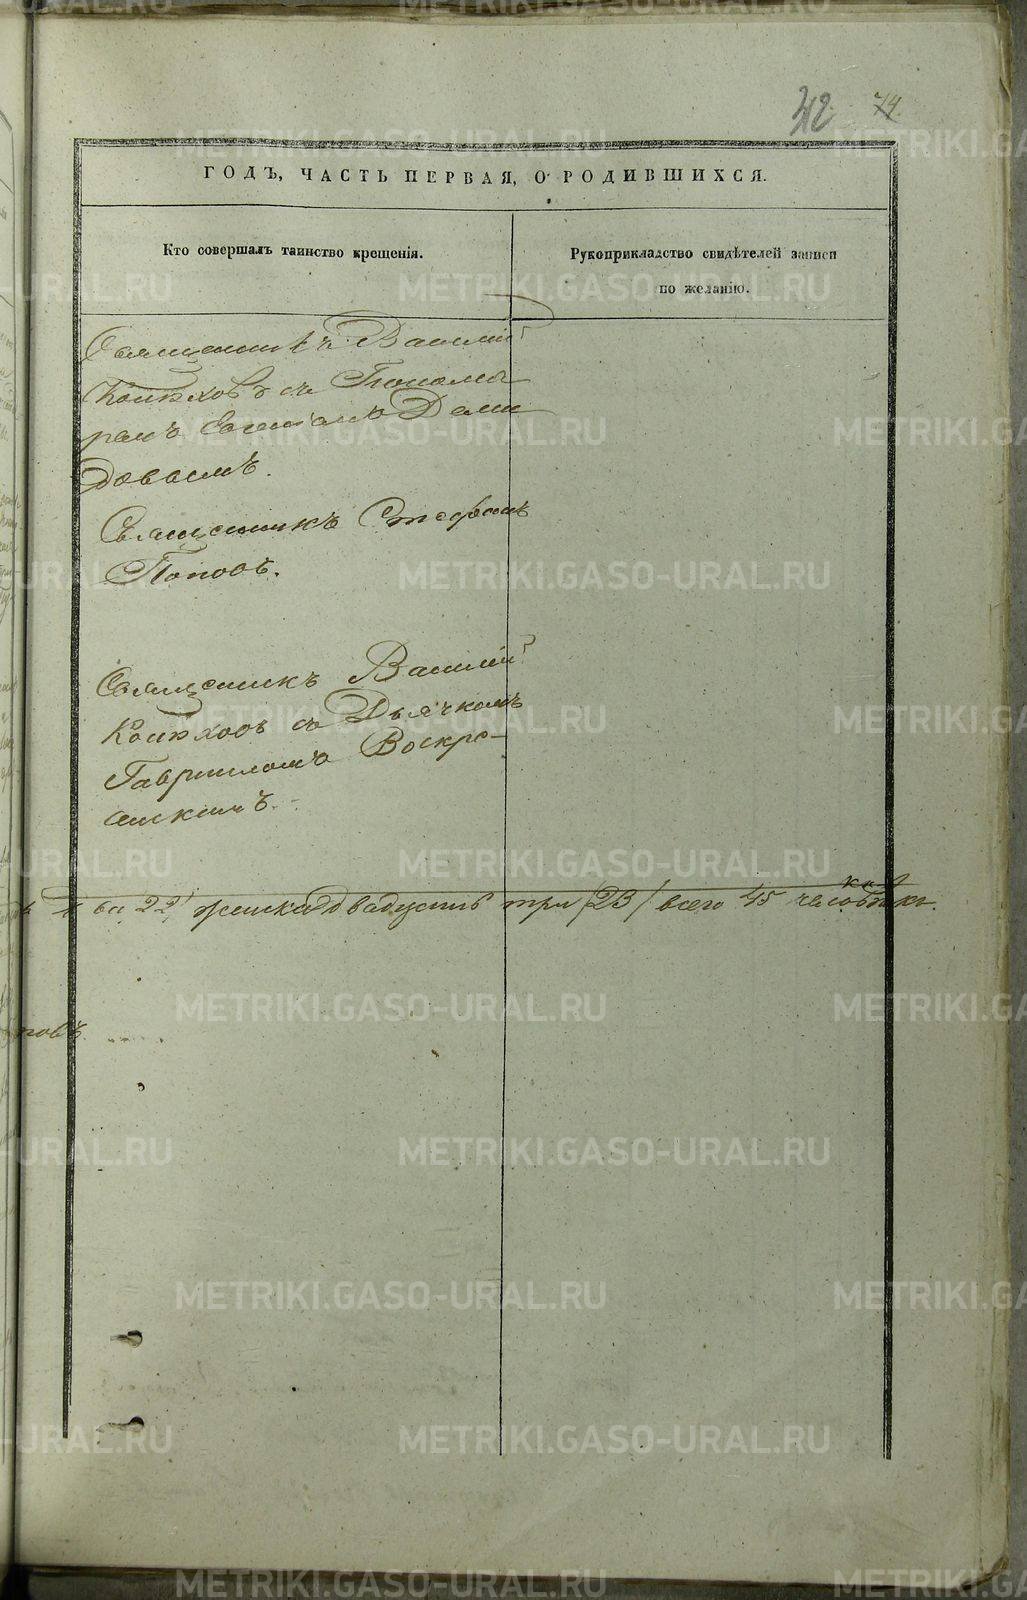 42 74.
ГОДЪ, ЧАСТЬ ПЕРВАЯ, О РОДИВШИХСЯ.
Кто совершалъ таинство крещенія.
Рукоприкладство свидѣтелей записи
по желанію.
Священникъ Василій
Конюховъ съ Понома
ремъ Евгеніемъ Деми
довымъ.
Священникъ Стефанъ
Поповъ.
Священникъ Василій
Конюховъ съ Дьячкомъ
Гавріиломъ Воскре-
сенскимъ.
22, женска двадцать три /23/ всего 45 человѣкъ.
повъ
METRIKI.GASO-URAL.RU